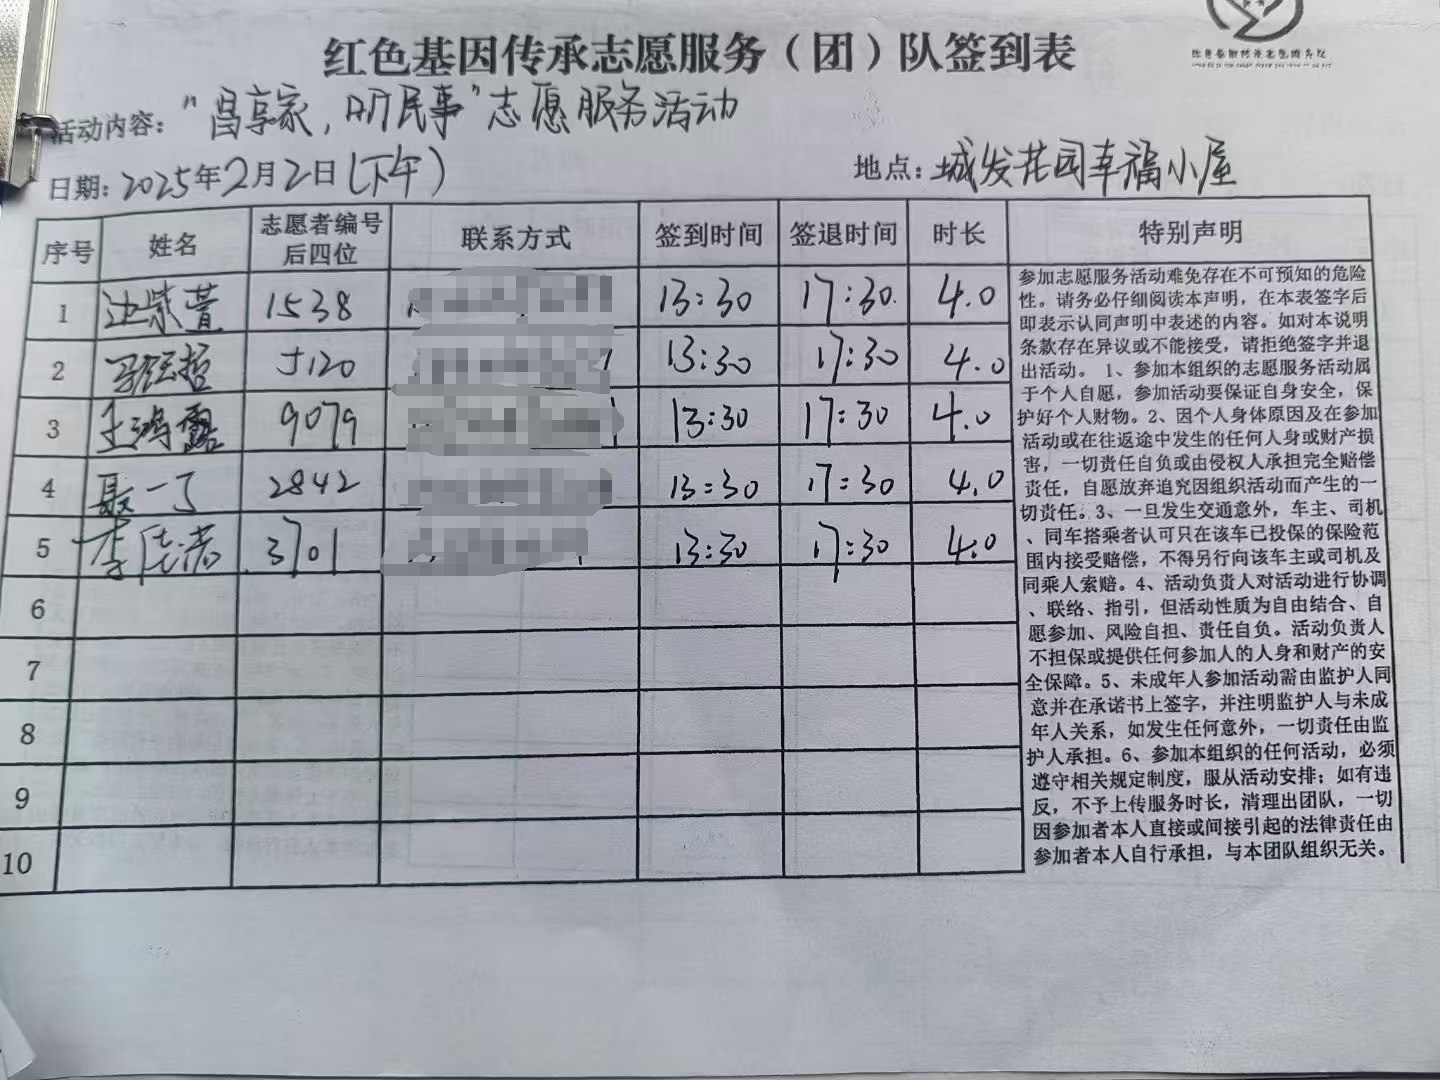 红色基因传承志愿服务（团）队签到表
活动内容："昌享家，听民事"志愿服务活动
日期：2025年2月2日(下午)
地点：城发花园幸福小屋
序号 姓名 志愿者编号后四位 联系方式 签到时间 签退时间 时长 特别声明
1 边紫萱 1538 13:30 17:30 4.0
2 5120 13:30 17:30 4.0
3 王鸿露 9079 13:30 17:30 4.0
4 聂一了 2842 13:30 17:30 4.0
5 李 3701 13:30 17:30 4.0
6
7
8
9
10
参加志愿服务活动难免存在不可预知的危险
性。请务必仔细阅读本声明，在本表签字后
即表示认同声明中表述的内容。如对本说明
条款存在异议或不能接受，请拒绝签字并退
出活动。 1、参加本组织的志愿服务活动属
于个人自愿，参加活动要保证自身安全，保
护好个人财物。2、因个人身体原因及在参加
活动或在往返途中发生的任何人身或财产损
害，一切责任自负或由侵权人承担完全赔偿
责任，自愿放弃追究因组织活动而产生的一
切责任。3、一旦发生交通意外，车主、司机
、同车搭乘者认可只在该车已投保的保险范
围内接受赔偿，不得另行向该车主或司机及
同乘人索赔。4、活动负责人对活动进行协调
、联络、指引，但活动性质为自由结合、自
愿参加、风险自担、责任自负。活动负责人
不担保或提供任何参加人的人身和财产的安
全保障。5、未成年人参加活动需由监护人同
意并在承诺书上签字，并注明监护人与未成
年人关系，如发生任何意外，一切责任由监
护人承担。6、参加本组织的任何活动，必须
遵守相关规定制度，服从活动安排；如有违
反，不予上传服务时长，清理出团队，一切
因参加者本人直接或间接引起的法律责任由
参加者本人自行承担，与本团队组织无关。